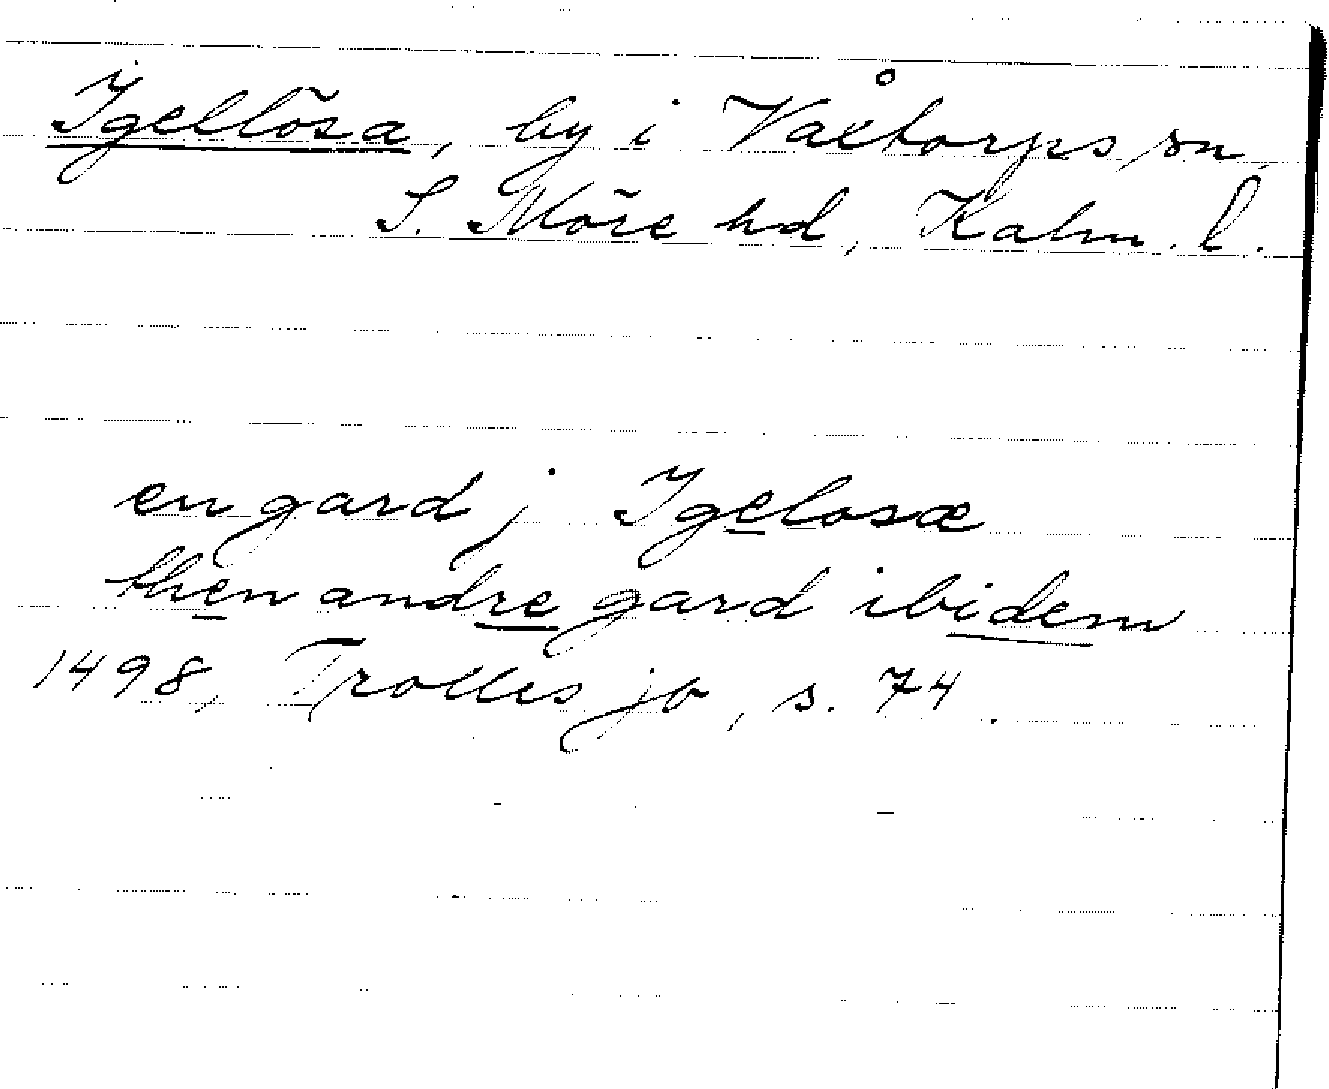 Igellösa, by i Våxtorps sn,
S. Möre hd, Kalm. l.
en gard j Igelosæ
then andre gard ibidem
1498, Trolles jb, s. 74.